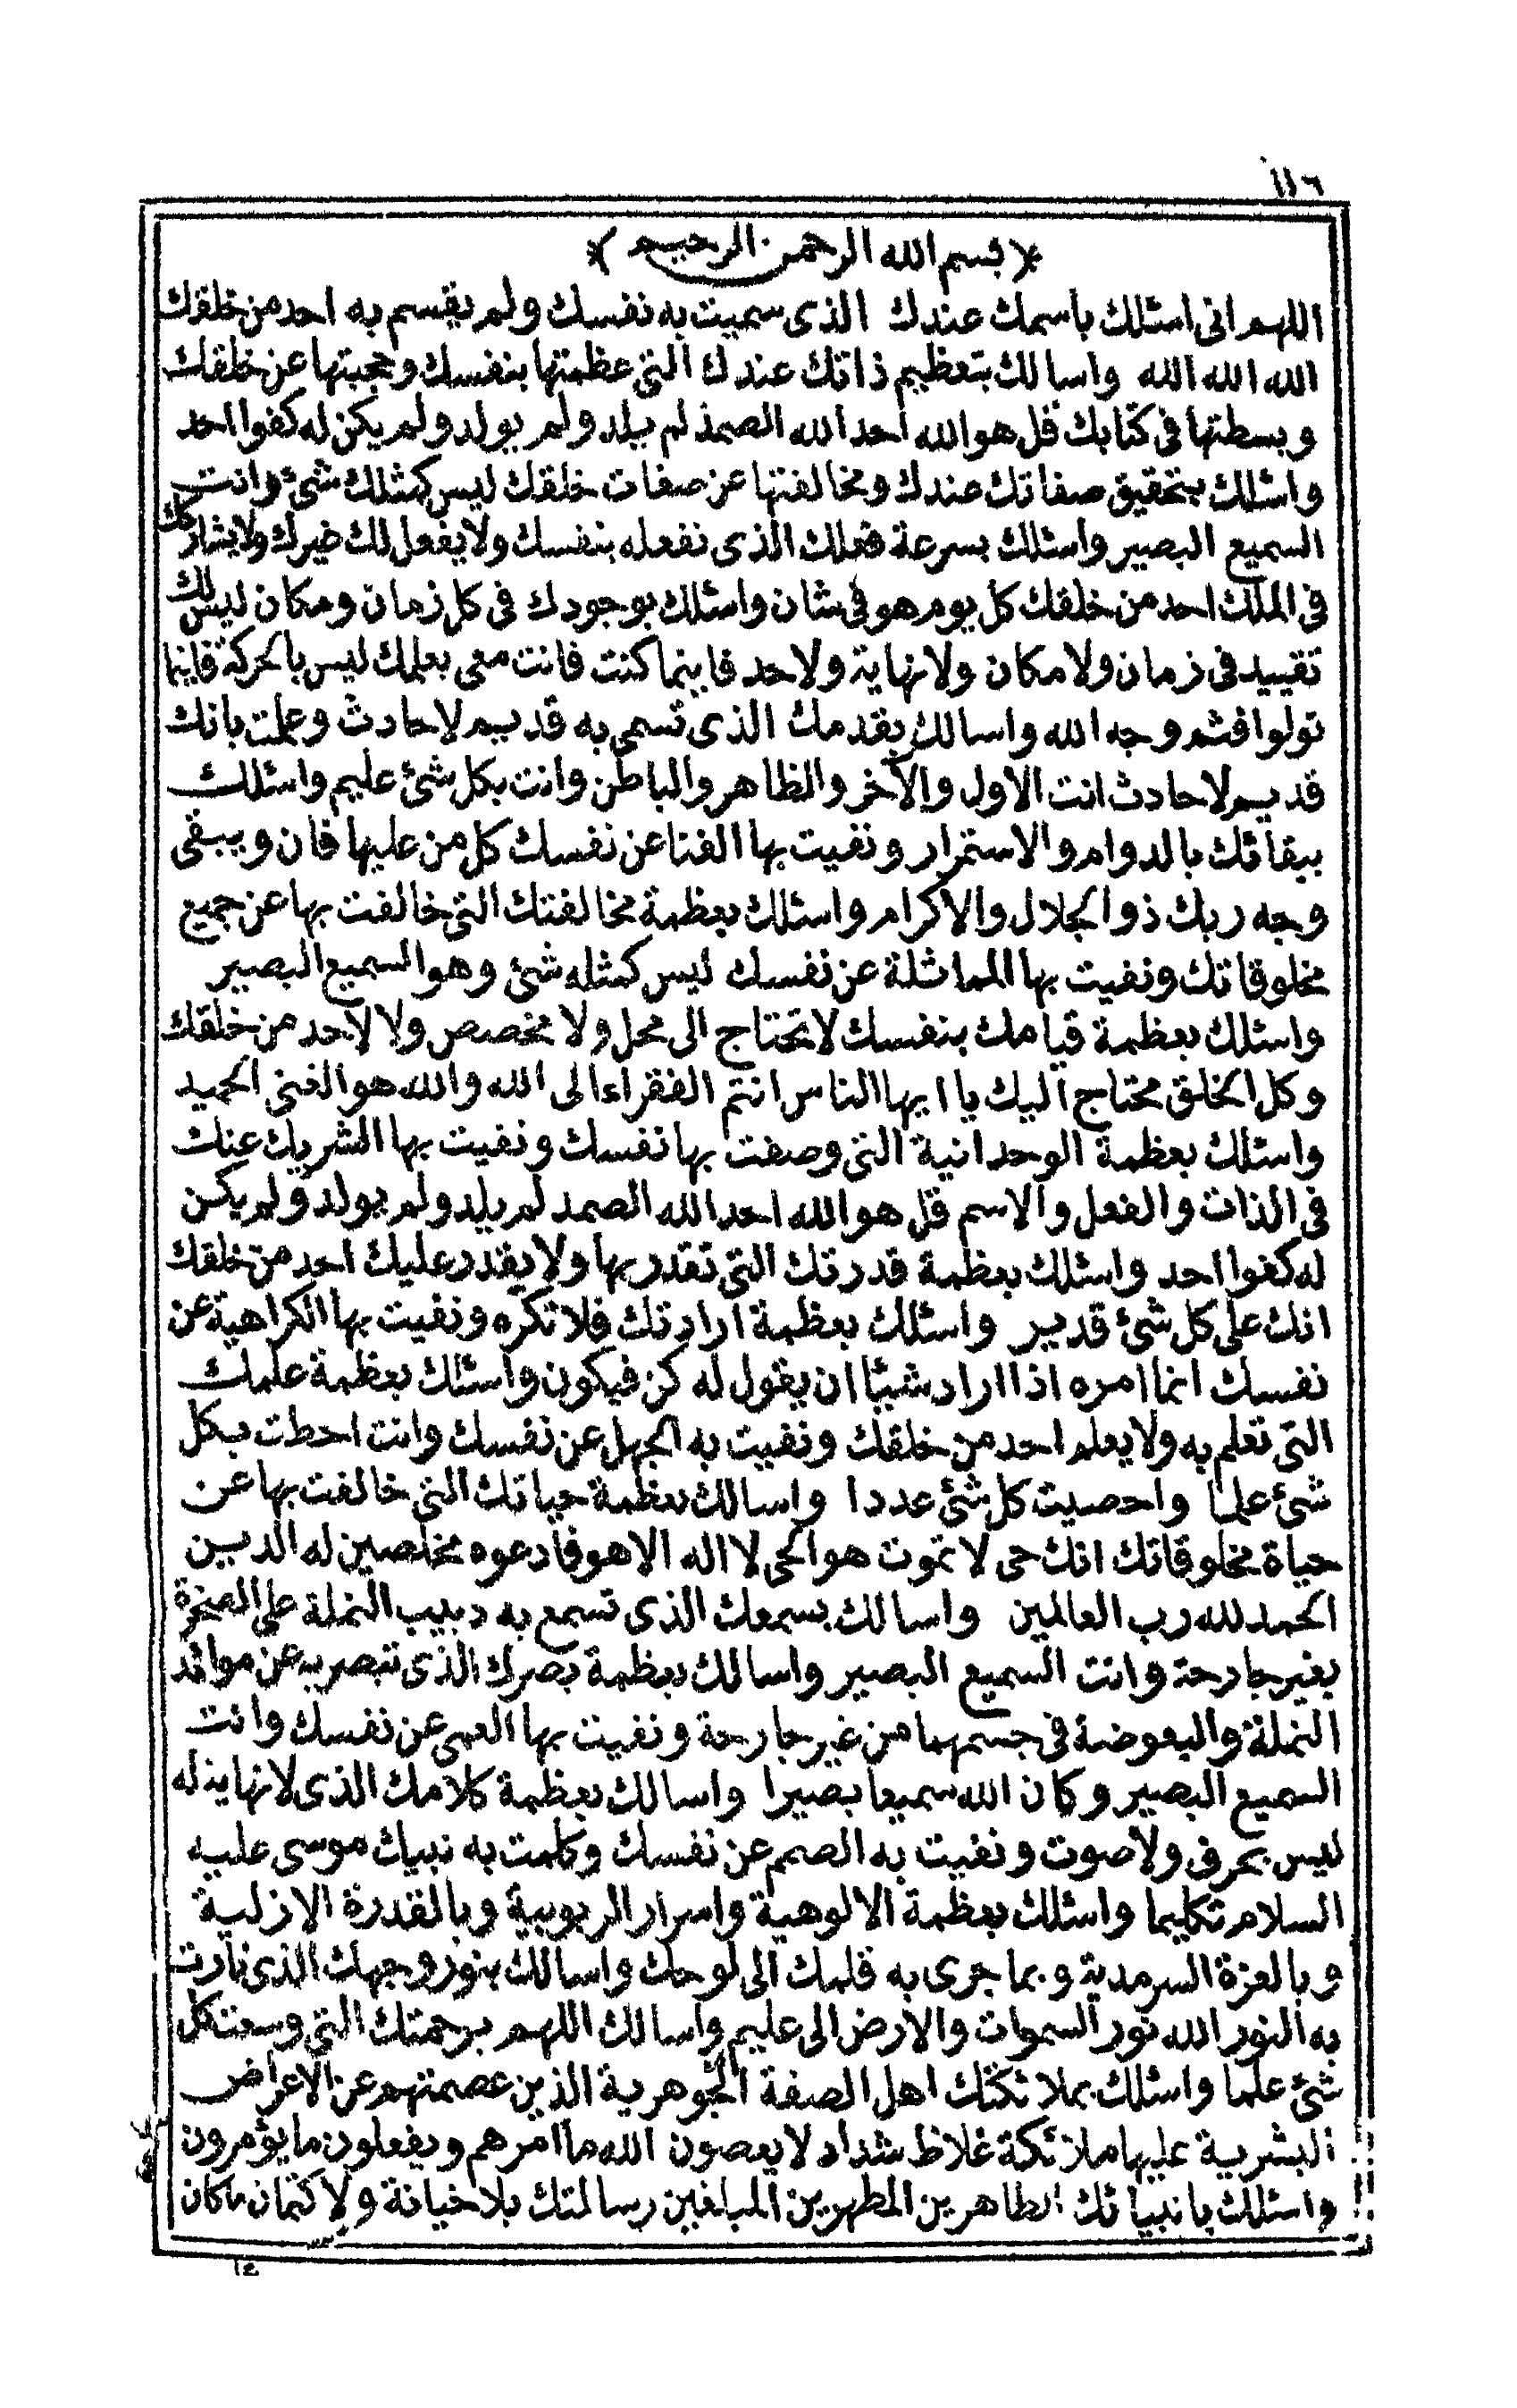 ١١٦
بسم الله الرحمن الرحيم
اللهم انى اسئلك باسمك عندك الذى سميت به نفسك ولم يقسم به احد من خلقك
الله الله الله واسالك بتعظيم ذاتك عندك التى عظمتها بنفسك وحجبتها عن خلقك
وبسطتها فى كتابك قل هو الله احد الله الصمد لم يلد ولم يولد ولم يكن له كفوا احد
واسئلك بتحقيق صفاتك عندك ومخالفتها عن صفات خلقك ليس كمثلك شئ وانت
السميع البصير واسئلك بسرعة فعلك الذى نفعله بنفسك ولا يفعل لك غيرك ولا يشاركك
فى الملك احد من خلقك كل يوم هو فى شان واسئلك بوجودك فى كل زمان ومكان ليس لك
تقييد فى زمان ولا مكان ولا نهاية ولا حد فاينما كنت فانت معى بعلمك ليس بالحركة فاينما
تولوا فثم وجه الله واسالك بقدمك الذى تسمى به قديم لا حادث وعلمت بانك
قديم لا حادث انت الاول والآخر والظاهر والباطن وانت بكل شئ عليم واسئلك
ببقائك بالدوام والاستمرار ونفيت بها الفنا عن نفسك كل من عليها فان ويبقى
وجه ربك ذو الجلال والاكرام واسئلك بعظمة مخالفتك التى خالفت بها عن جميع
مخلوقاتك ونفيت بها المماثلة عن نفسك ليس كمثله شئ وهو السميع البصير
واسئلك بعظمة قيامك بنفسك لا تحتاج الى محل ولا مخصص ولا لاحد من خلقك
وكل الخلق محتاج اليك يا ايها الناس انتم الفقراء الى الله والله هو الغنى الحميد
واسئلك بعظمة الوحدانية التى وصفت بها نفسك ونفيت بها الشريك عنك
فى الذات والفعل والاسم قل هو الله احد الله الصمد لم يلد ولم يولد ولم يكن
له كفوا احد واسئلك بعظمة قدرتك التى تقدر بها ولا يقدر عليك احد من خلقك
انك على كل شئ قدير واسئلك بعظمة ارادتك فلا تكره ونفيت بها الكراهية عن
نفسك انما امره اذا اراد شيئا ان يقول له كن فيكون واسئلك بعظمة علمك
التى تعلم به ولا يعلم احد من خلقك ونفيت به الجهل عن نفسك وانت احطت بكل
شئ علما واحصيت كل شئ عددا واسالك بعظمة حياتك التى خالفت بها عن
حياة مخلوقاتك انك حى لا تموت هو الحى لا اله الا هو فادعوه مخلصين له الدين
الحمد لله رب العالمين واسالك بسمعك الذى تسمع به دبيب النملة على الصخرة
بغير جارحة وانت السميع البصير واسالك بعظمة بصرك الذى تبصر به عن موائد
النملة والبعوضة فى جسمهما من غير جارحة ونفيت بها العمى عن نفسك وانت
السميع البصير وكان الله سميعا بصيرا واسالك بعظمة كلامك الذى لا نهاية له
ليس بحرف ولا صوت ونفيت به الصمم عن نفسك وكلمت به نبيك موسى عليه
السلام تكليما واسئلك بعظمة الالوهية واسرار الربوبية وبالقدرة الازلية
وبالعزة السرمدية وبما جرى به قلمك الى لوحك واسالك بنور وجهك الذى نارت
به النور الله نور السموات والارض الى عليم واسالك اللهم برحمتك التى وسعت كل
شئ علما واسئلك بملائكتك اهل الصفة الجوهرية الذين عصمتهم عن الاعراض
البشرية عليها ملائكة غلاظ شداد لا يعصون الله ما امرهم ويفعلون ما يؤمرون
واسئلك بانبيائك الطاهرين المطهرين المبلغين رسالتك بلا خيانة ولا كتمان ماكان